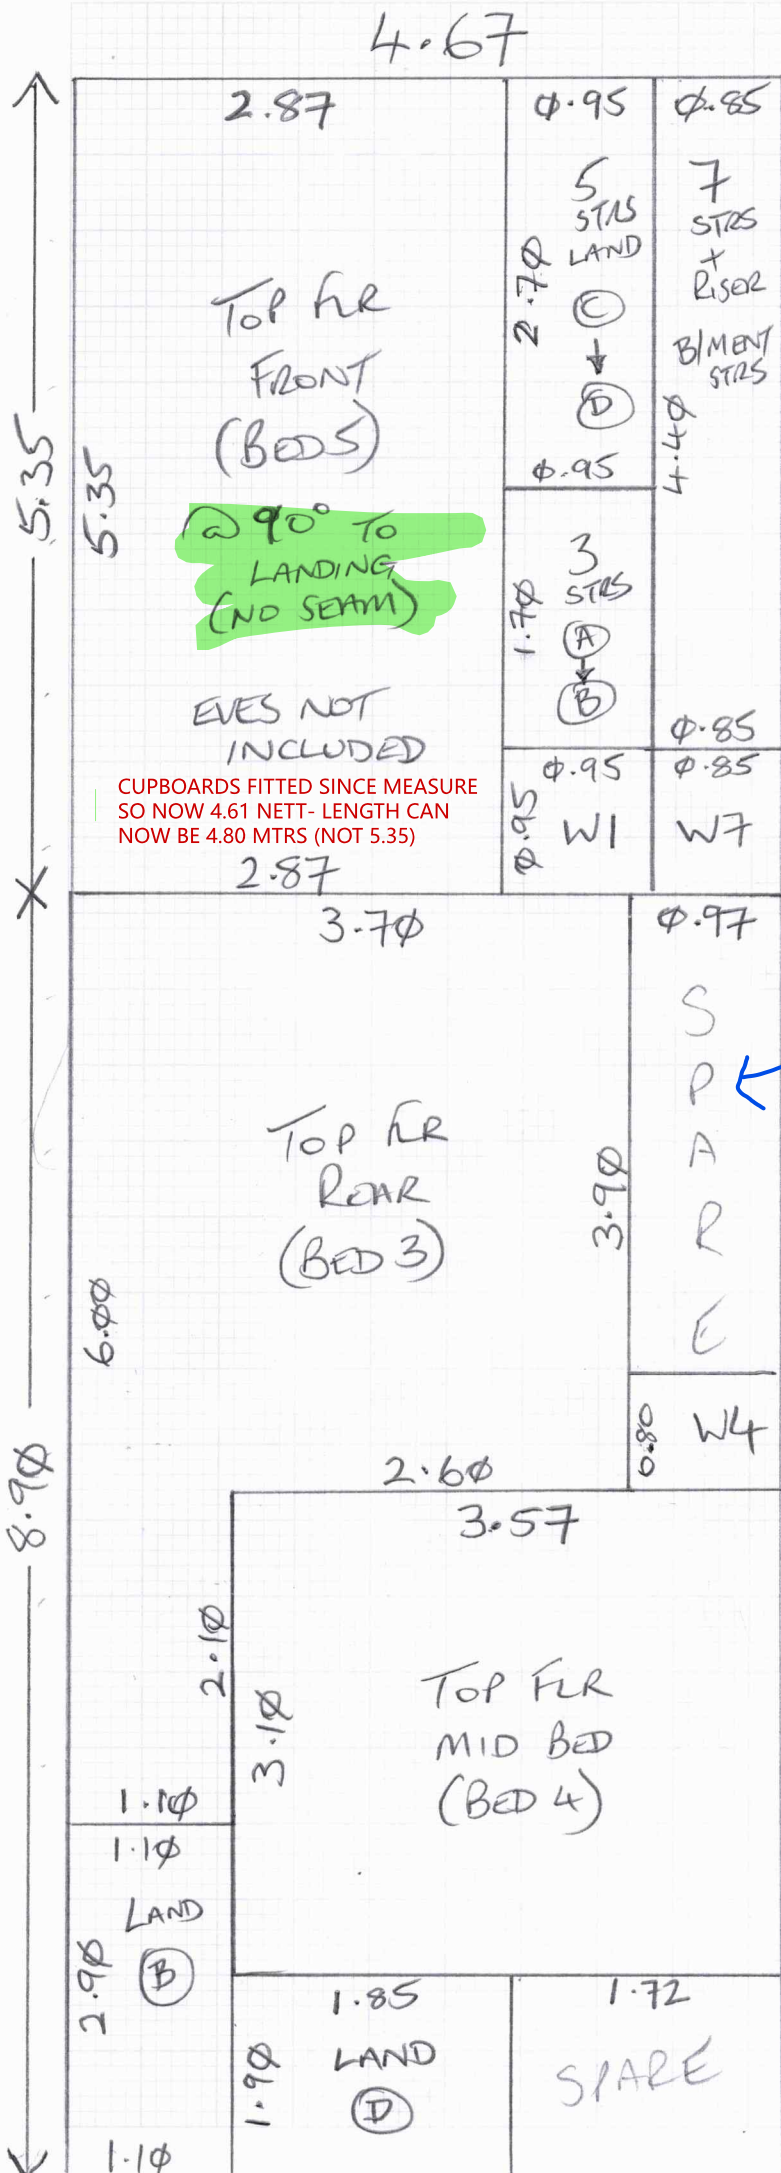 4.67
2.87
0.95
0.85
5
STRS
LAND
C
D
2.70
0.95
7
STRS
+
RISER
B/MENT
STRS
4.40
TOP FLR
FRONT
(BED 5)
@ 90° TO
LANDING
(NO SEAM)
5.35
5.35
3
STRS
A
B
1.70
EVES NOT
INCLUDED
CUPBOARDS FITTED SINCE MEASURE
SO NOW 4.61 NETT- LENGTH CAN
NOW BE 4.80 MTRS (NOT 5.35)
2.87
0.85
0.95
0.85
0.95
W1
W7
3.70
0.97
S
P
A
R
E
TOP FLR
REAR
(BED 3)
3.90
6.00
0.80
W4
2.60
8.90
3.57
2.10
3.10
TOP FLR
MID BED
(BED 4)
1.10
1.10
LAND
B
2.90
1.85
1.72
LAND
D
1.90
SPARE
1.10